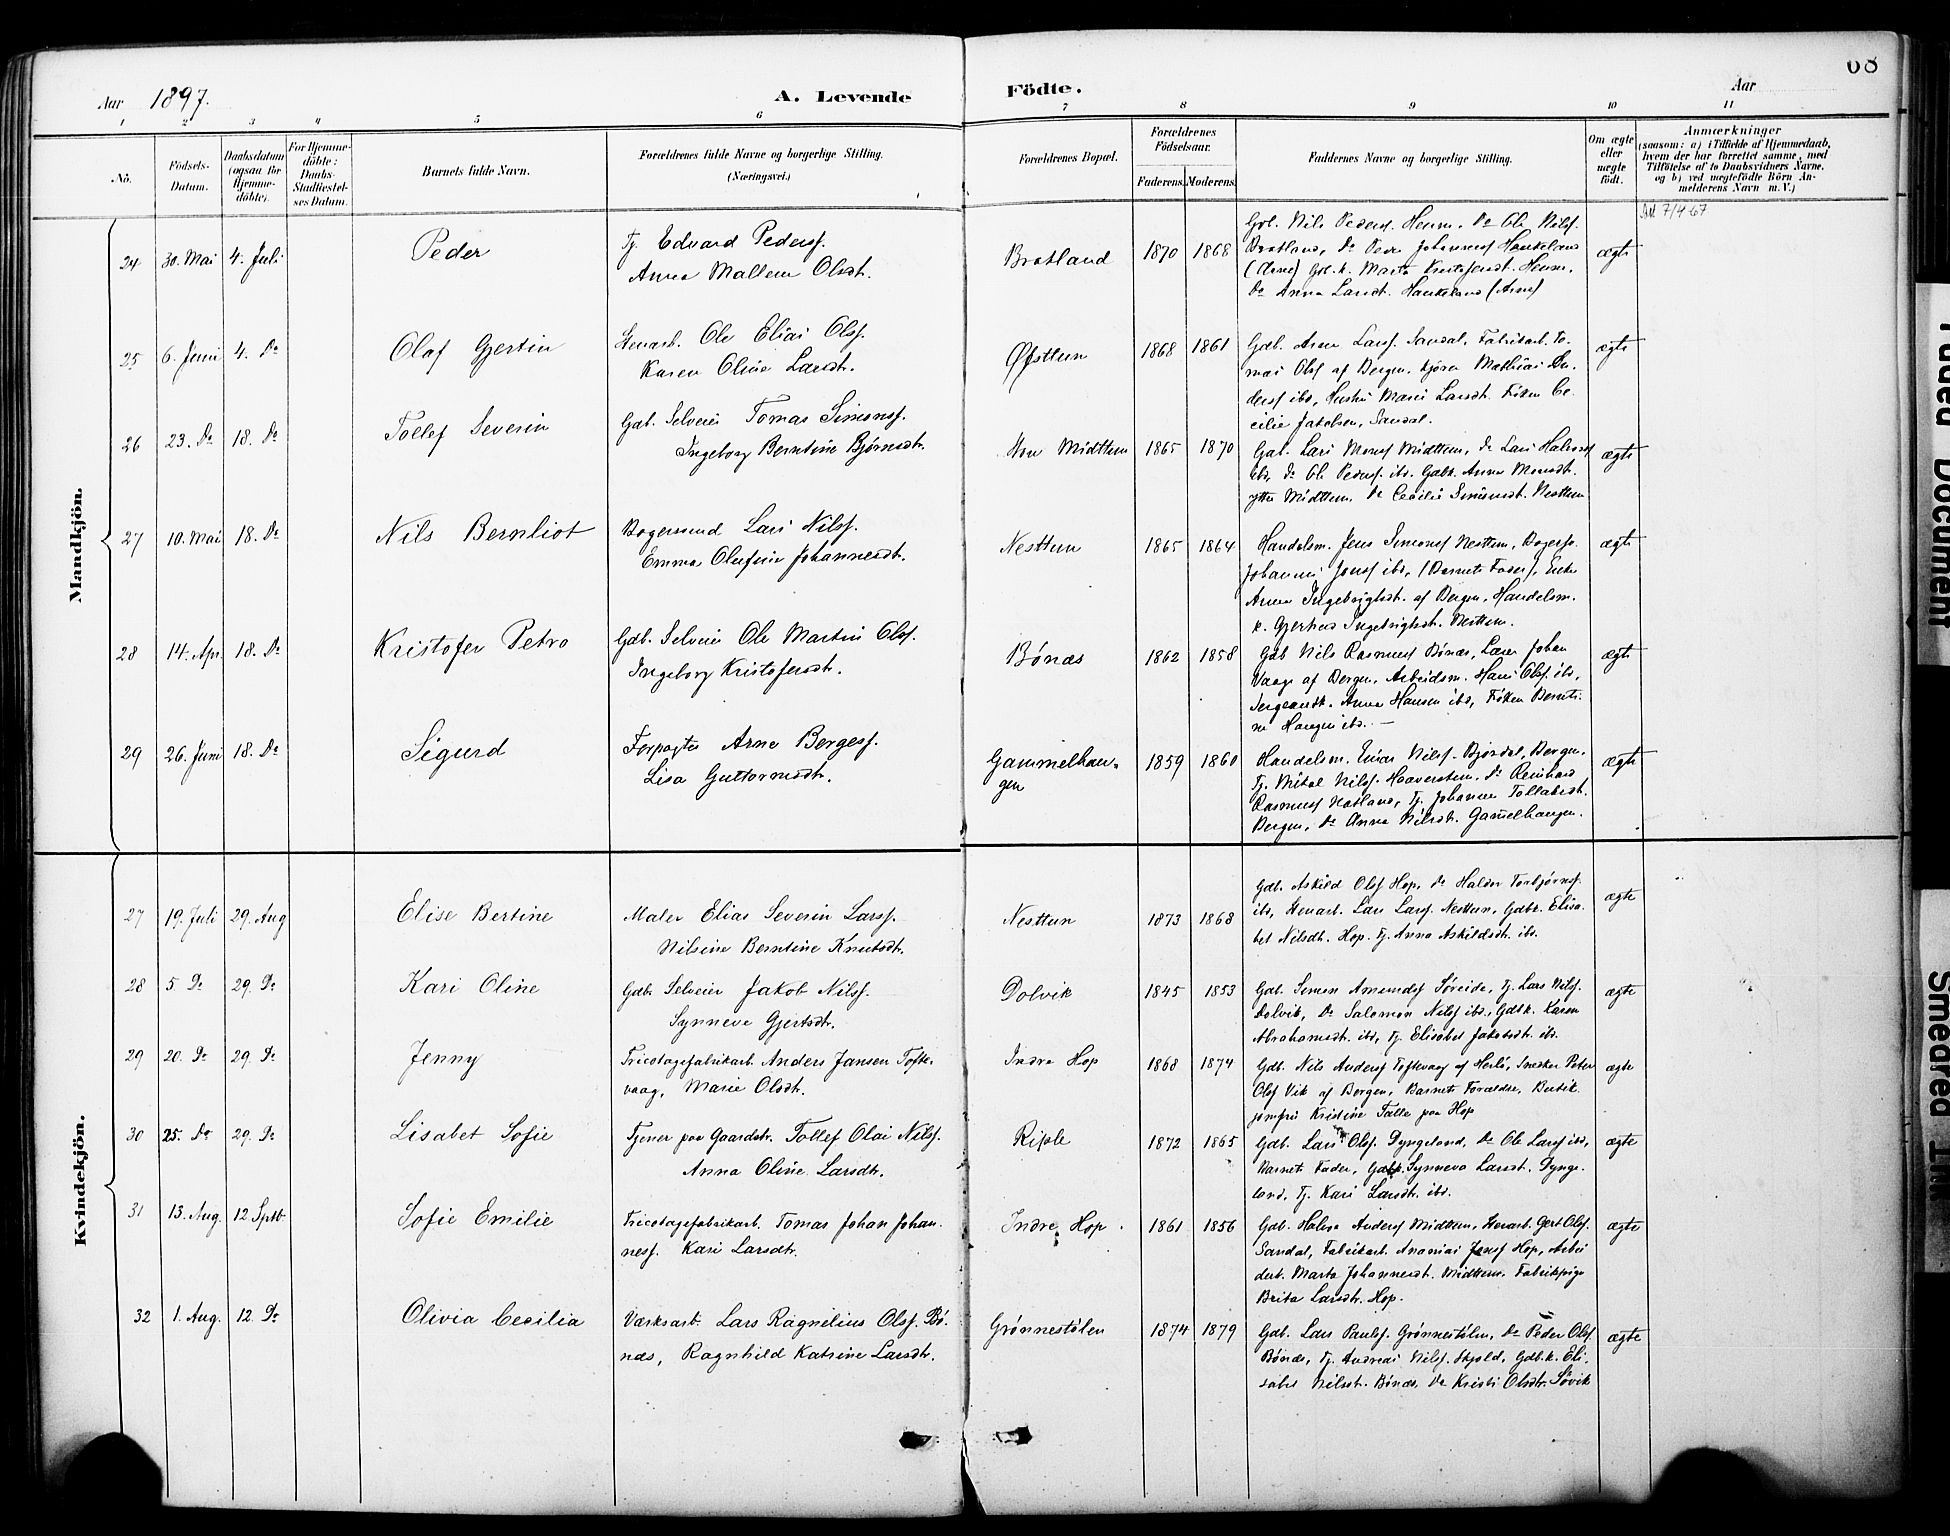 68
Aar 1897. A. Levende Födte. Aar
1 2 3 4 5 6 7 8 9 10 11
No.
Födsels-Datum.
Daabsdatum (ogsaa for Hjemme-döbte).
For Hjemme-döbte: Daabs-Stadfæstel-ses Datum.
Barnets fulde Navn.
Forældrenes fulde Navne og borgerlige Stilling.
(Næringsvei.)
Forældrenes Bopæl.
Forældrenes Födselsaar.
Faderens. Moderens.
Faddernes Navne og borgerlige Stilling.
Om ægte eller uægte födt.
Anmærkninger
(saasom: a) i Tilfælde af Hjemmedaab,
hvem der har forrettet samme, med
Tilföielse af to Daabsvidners Navne.
og b) ved uægtefödte Börn An-
melderens Navn m. V.)
7/4-67
Mandkjön.
24 30. Mai 4. Juli Peder
Tj. Edvard Pedersf.
Anna Mallene Olsdt.
Bratland 1870 1868
Gbl. Nils Pedersf. Henm. Do Ole Nilsf.
Bratland, Do Peder Johannesf Haukeland
(Arne) Gbl.k. Marta Kristofersdt. Henm.
Do Anna Larsdt. Haukeland (Arne)
ægte
25 6. Juni 4. Do Olaf Gjertin
Stenarb. Ole Elias Olsf.
Karen Oline Larsdt.
Øvsttun 1868 1861
Gdb. Arne Larsf. Sandal, Fabrikarb. To-
mas Olsf af Bergen, Kjører Mathias An-
dersf ibd, Hustru Marie Larsdt. Frøken Ce-
cilie Jakobsen, Sandal.
ægte
26 23. Do 18. Do Tollef Severin
Gdb. Selveier Tomas Simonsf.
Ingeborg Berntine Bjørnsdt.
Midttun 1865 1870
Gdb. Lars Monsf Midttun, Do Lars Halvorsf
ibd, Do Ole Pedersf. ibd. Gdbk. Anna Monsdt.
ytre Midttun. Do Cecilie Simonsdt. Nesttun
ægte
27 10. Mai 18. Do Nils Bernliot
Bagersvend Lars Nilsf.
Emma Olufine Johannesdt.
Nesttun 1865 1864
Handelsm. Jens Simonsf Nesttun, Bagersv.
Johannes Jonsf ibd, (Barnets Fader), Enke
Anna Ingebrigtsdt. af Bergen, Handelsm.
k. Gjertrud Ingebrigtsdt. Nesttun.
ægte
28 14. Apr. 18. Do Kristofer Petro
Gdb. Selveier Ole Martin Olsf.
Ingeborg Kristofersdt.
Bönæs 1862 1858
Gdb Nils Rasmusf Bönæs, Lærer Johan
Vaage af Bergen, Arbeidsm. Hans Olsf. ibd,
Sergeantk. Anna Hansen ibd, Frøken Bernti-
ne Haugen ibd. —
ægte
29 26. Juni 18. Do Sigurd
Forpagter Arne Bergesf.
Lisa Guttormsdt.
Gammelhau-
gen
1859 1860
Handelsm. Einar Nilsf. Björdal, Bergen.
Tj. Mikal Nilsf. Haaverstun. Do Reinhard
Rasmusf Natland, Tj. Johanne Tollaksdt.
Bergen, Do Anna Nilsdt. Gamelhaugen.
ægte
Kvindekjön.
27 19. Juli 29. Aug Elise Bertine
Maler Elias Severin Larsf.
Nilsine Berntine Knutsdt.
Nesttun 1873 1868
Gdb. Askild Olsf Hop, Do Haldor Torbjørnsf.
ibd, Stenarb. Lars Larsf. Nesttun, Gdbk. Elisa-
bet Nilsdt. Hop. Tj. Anna Askildsdt. ibd.
ægte
28 5 Do 29. Do Kari Oline
Gdb. Selveier Jakob Nilsf.
Synneve Gjertsdt.
Dolvik 1845 1853
Gdb. Simon Amundsf Søreide, Tj. Lars Nilsf.
Dolvik, Do Salomon Nilsf ibd, Gdbk. Karen
Abrahamsdt. ibd, Tj. Elisabet Jakobsdt. ibd.
ægte
29 20. Do 29. Do Jenny
Tricotagefabrikarb. Anders Jansen Tofte-
vaag, Marie Olsdt.
Indre Hop 1868 1874
Gdb. Nils Andersf Toftevaag af Herlö, Snedker Peter
Olsf Vik af Bergen, Barnets Forældre, Butik-
jomfru Kristine Fatle paa Hop
ægte
30 25. Do 29. Do Lisabet Sofie
Tjener paa Gaardsbr. Tollef Olai Nilsf.
Anna Oline Larsdt.
Riple 1872 1865
Gdb. Lars Olsf. Dyngeland, Do Ole Larsf ibd,
Barnets Fader, Gdbk. Synneva Larsdt. Dynge-
land, Tj. Kari Larsdt. ibd.
ægte
31 13. Aug. 12. Septb Sofie Emilie
Tricotagefabrikarb. Tomas Johan Johan-
nesf. Kari Larsdt.
Indre Hop. 1861 1856
Gdb. Halvor Andersf Midttun, Stenarb. Gert Olsf.
Sandal, Fabrikarb. Ananias Jonsf Hop, Arbei-
dert. Marta Johannesdt. Midttun. Fabrikpige
Brita Larsdt. Hop.
ægte
32 1. Aug. 12. Do Olivia Cecilia
Værksarb. Lars Ragnelius Olsf. Bö-
næs, Ragnhild Katrine Larsdt.
Grönnestölen 1874 1879
Gdb. Lars Paulsf. Grönnestölen, Do Peder Olsf
Bönæs, Tj. Andreas Nilsf. Skjold, Gdb.k. Eli-
sabet Nilsdt. Bönæs, Do Kristi Olsdt. Søvik
ægte
Faded Document
Smeared Ink